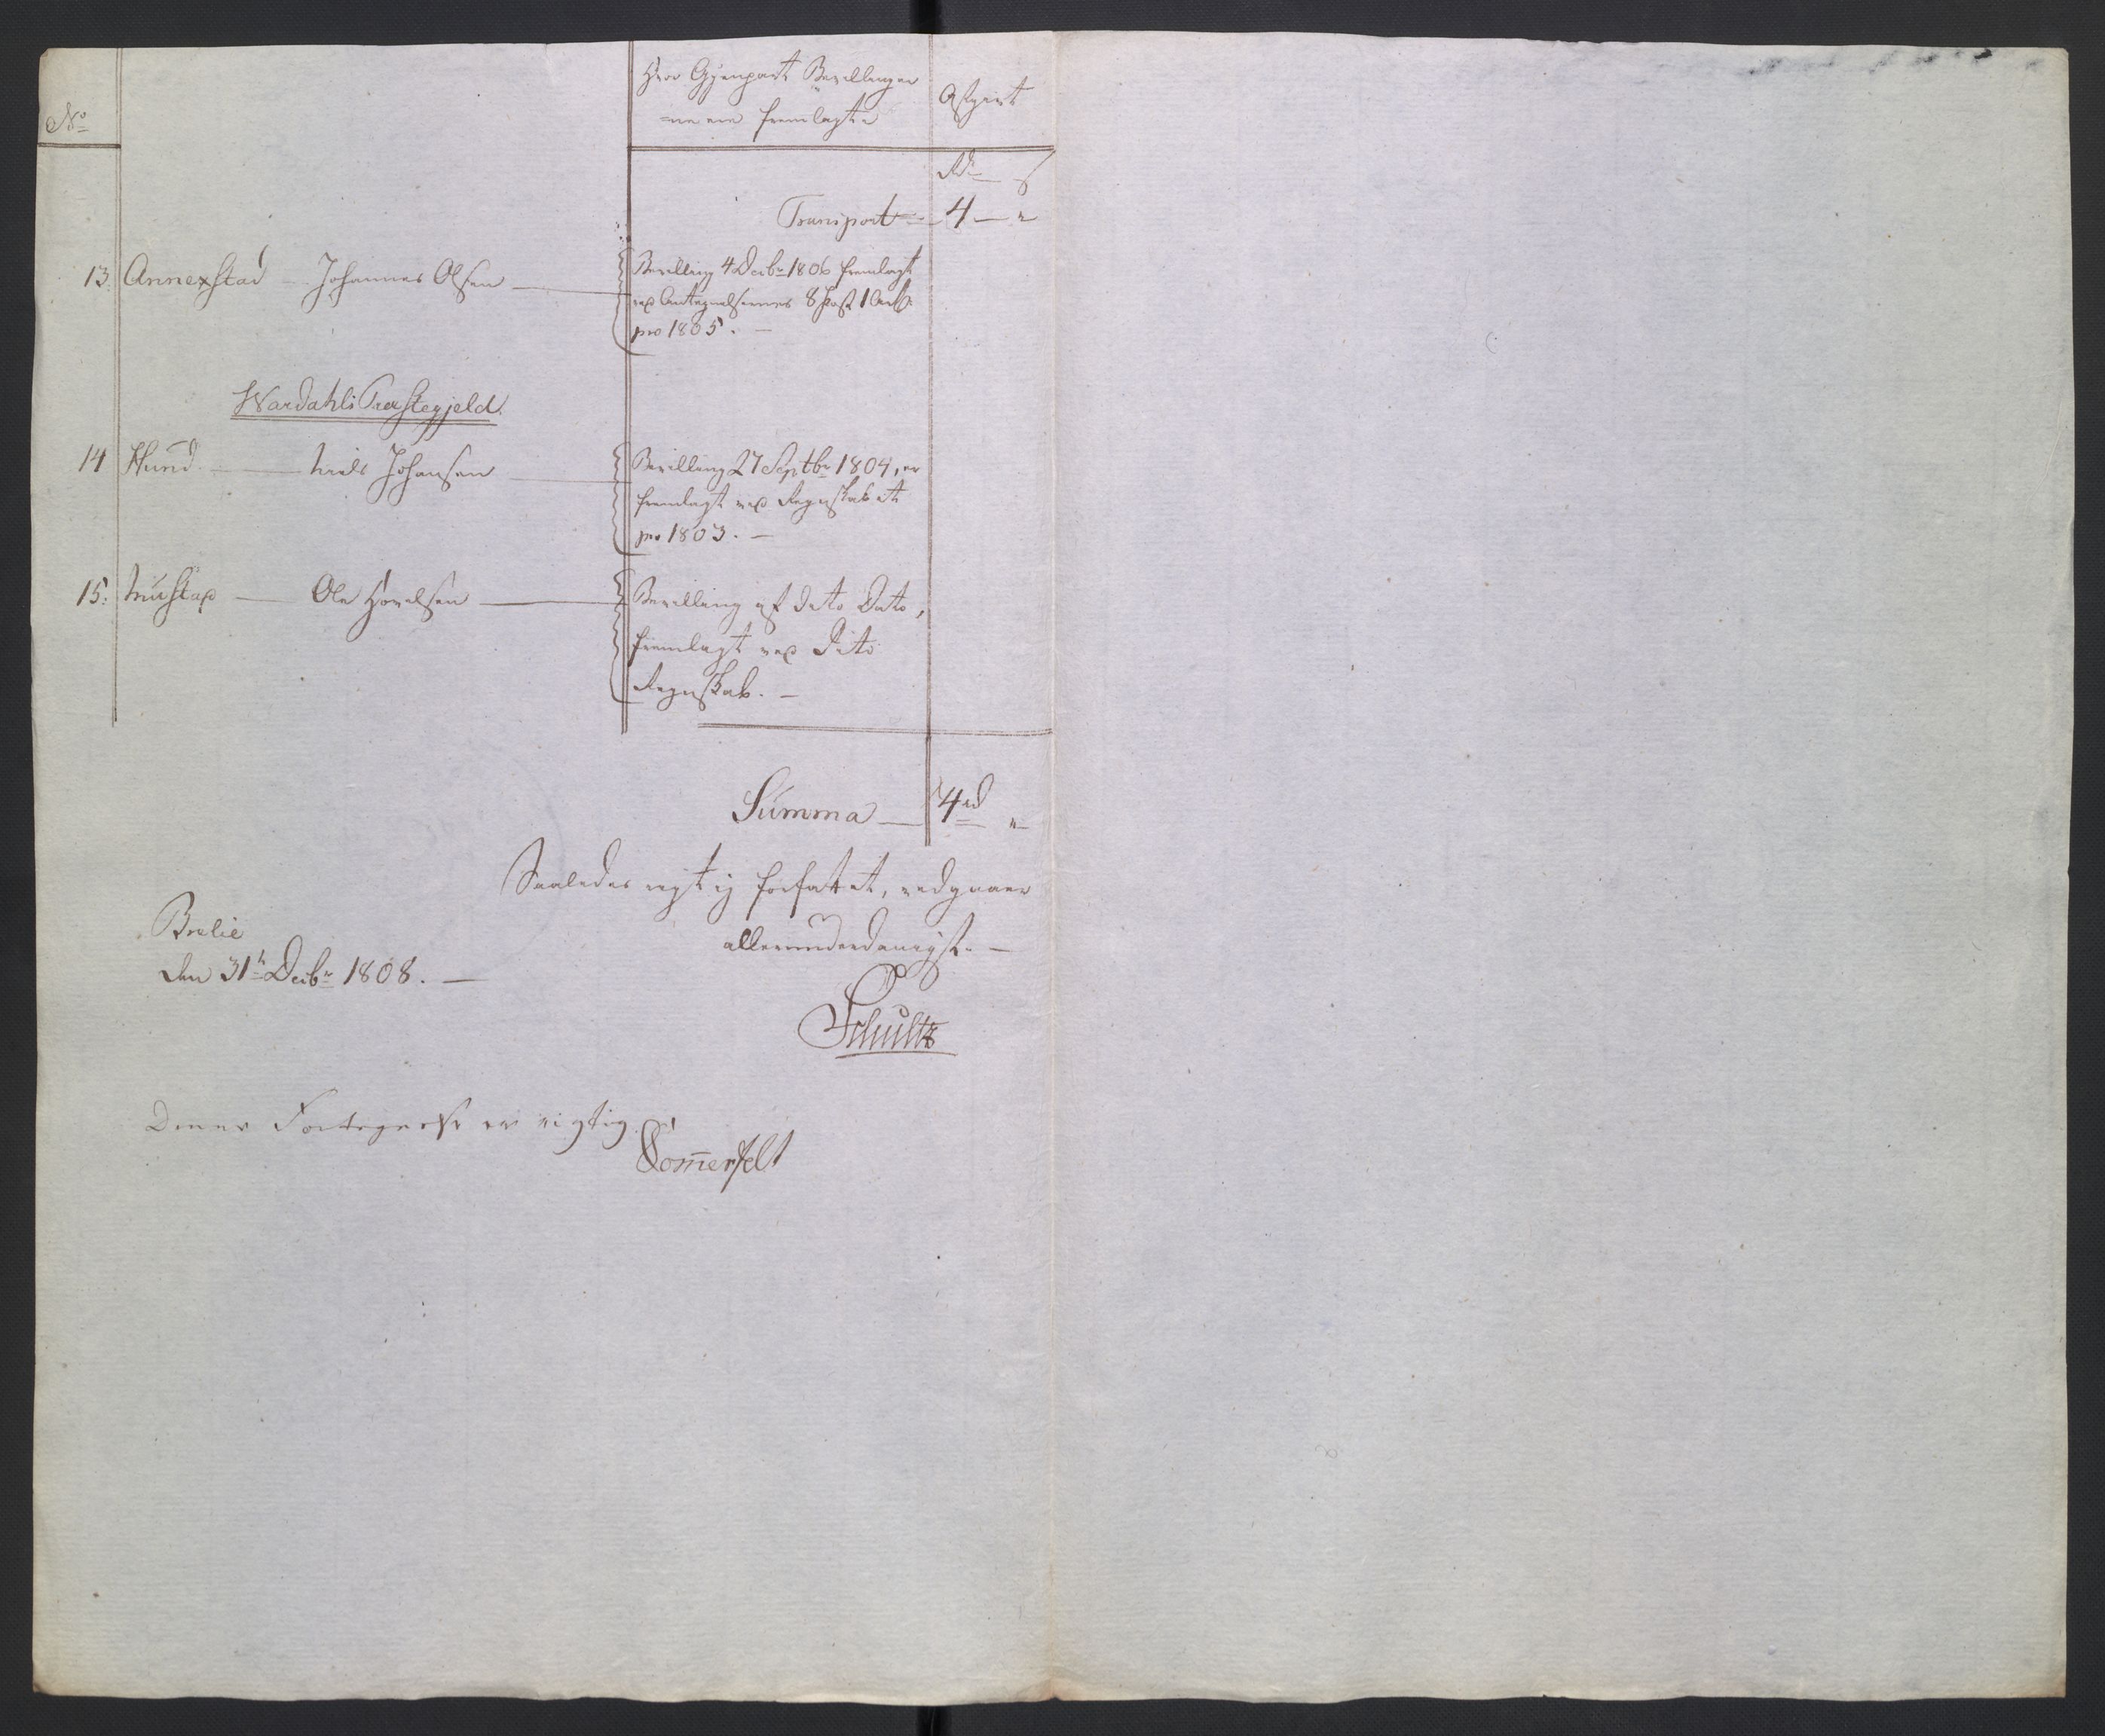 No
Hvor Gjenpart Bevillinger
=ne ere fremlagte
Afgivt
Rd s
Transport 4 — "
13. Annexstad — Johannes Olsen — Bevilling 4 Decbr 1806 fremlagt
ved Antegnelsernes 8 Post 1
pro 1805. —
Wardahls Præstegjeld.
14 Hund. — Niels Johansen — Bevilling 27 Septbr 1804, er
fremlagt ved Regnskabet
pro 1803. —
15. — Ole — Bevilling af dito Dato,
fremlagt ved Dito
Regnskab. —
Summa — 4 rd "
Saaledes rigtig forfattet, vedgaaer
allerunderdanigst. —
Bratlie
den 31te Decbr 1808. —
Schultz
Denne Fortegnelse er rigtig.
Som̄erfelt